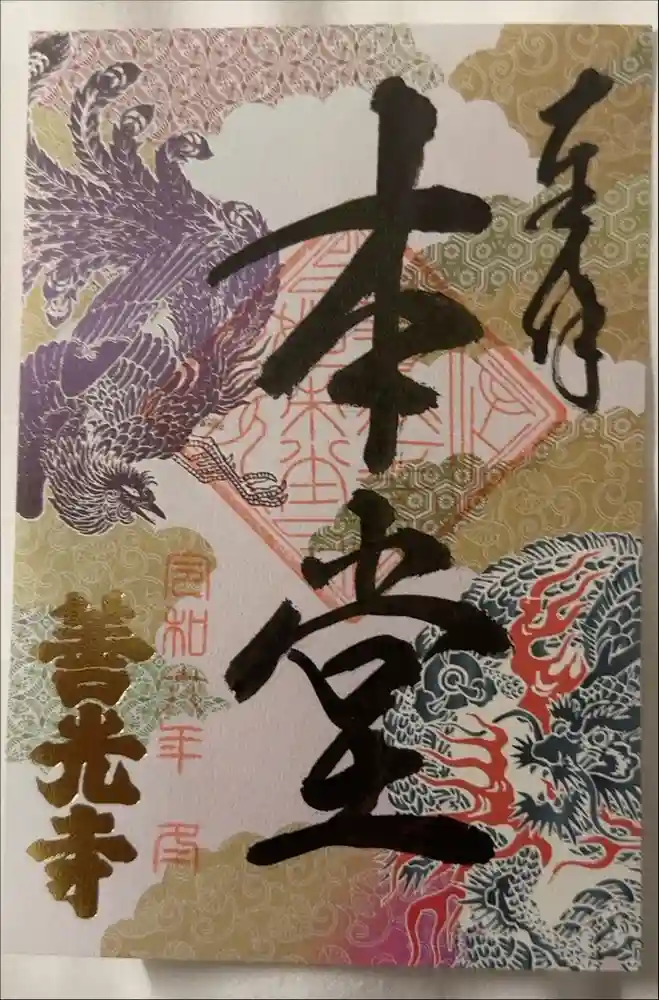 奉拝
本堂
令和六年
善光寺